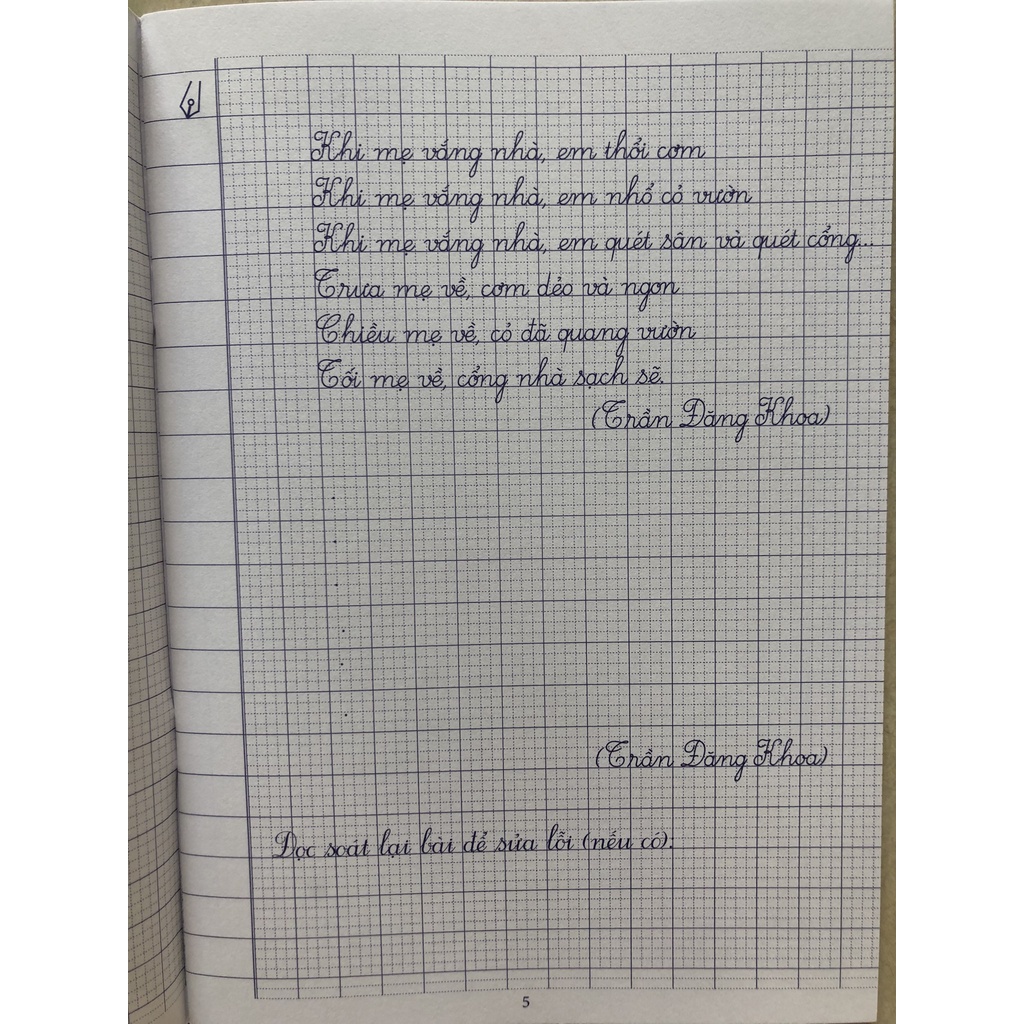 Khi mẹ vắng nhà, em thổi cơm
Khi mẹ vắng nhà, em nhổ cỏ vườn
Khi mẹ vắng nhà, em quét sân và quét cổng...
Trưa mẹ về, cơm dẻo và ngon
Chiều mẹ về, cỏ đã quang vườn
Tối mẹ về, cổng nhà sạch sẽ.
(Trần Đăng Khoa)
(Trần Đăng Khoa)
Đọc soát lại bài để sửa lỗi (nếu có).
5